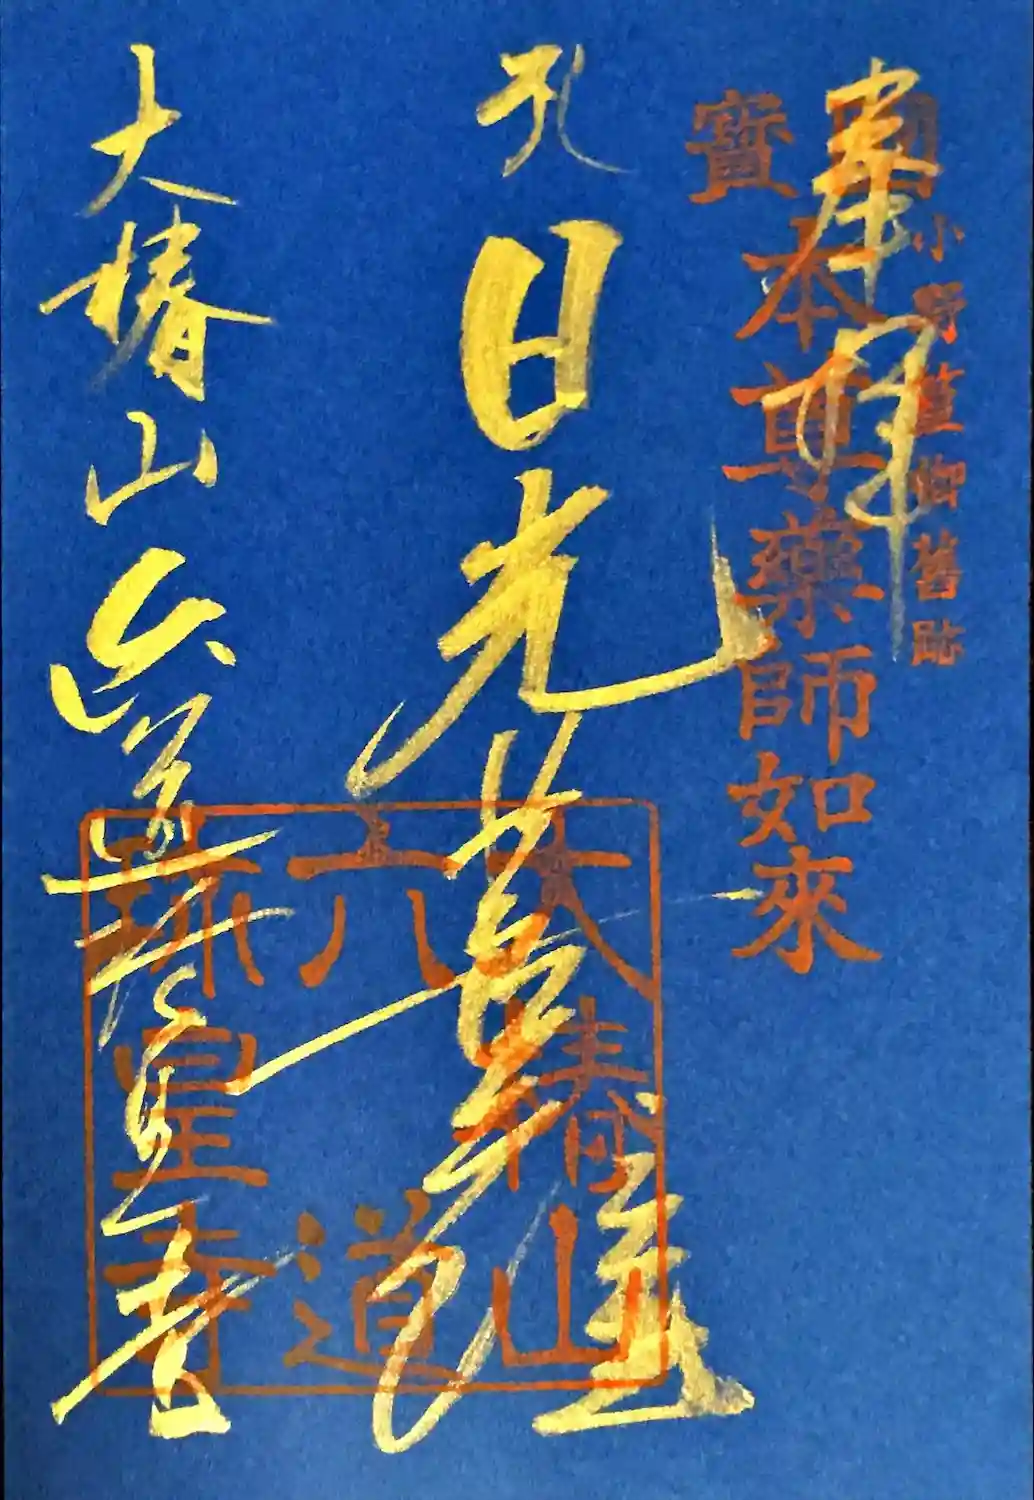 奉拝
小野篁卿舊跡
國寶
本尊藥師如來
日光菩薩
大椿山
六道
珍皇寺
大椿山 六道珍皇寺